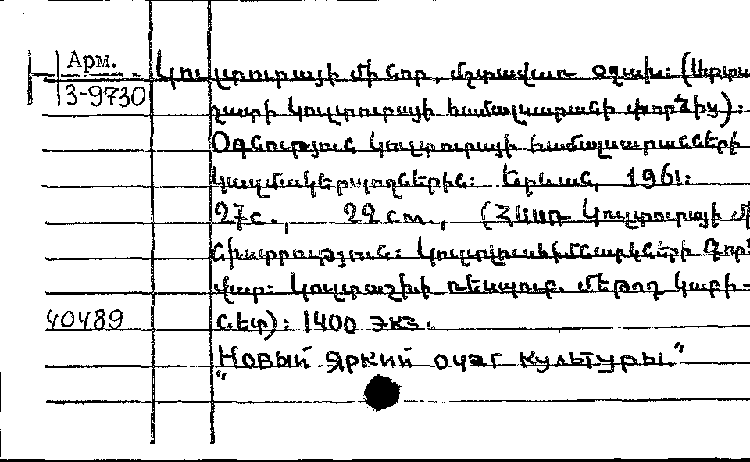 Арм.
3-9730
Կուլտուրայի մի նոր, մշտավառ օջախ: (Արտա-
շատի կուլտուրայի համալսարանի փորձից):
Օգնություն կուլտուրայի համալսարանների
կազմակերպողներին: Երևան, 1961:
27с., 22 см., (ՀՍՍՌ Կուլտուրայի մի-
նիստրություն: Կուլտլուսհիմնարկների գործ
վար: Կուլտաշխի ռեսպուբ. մեթոդ կաբի-
նետ): 1400 экз.
40489
"Новый яркий очаг культуры."